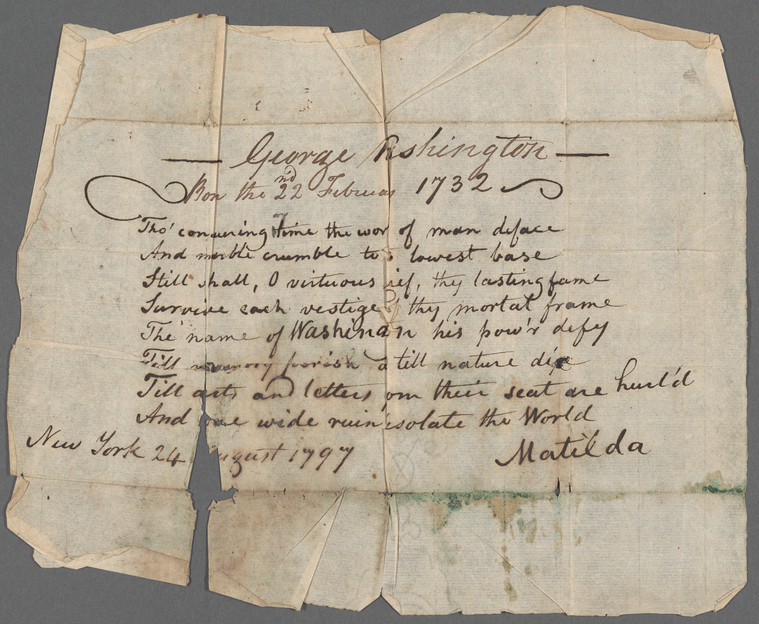 — George Washington —
Born the 22nd Februar 1732
Tho' conquering time the wor of man deface
And marble crumble to s lowest base
Still shall, O virtuous ief, thy lasting fame
Survive each vestige of thy mortal frame
The name of Washington his pow'r defy
Till memory perish a till nature die
Till arts and letters om their seat are hurl'd
And one wide ruin isolate the World
New York 24 August 1797
Matilda